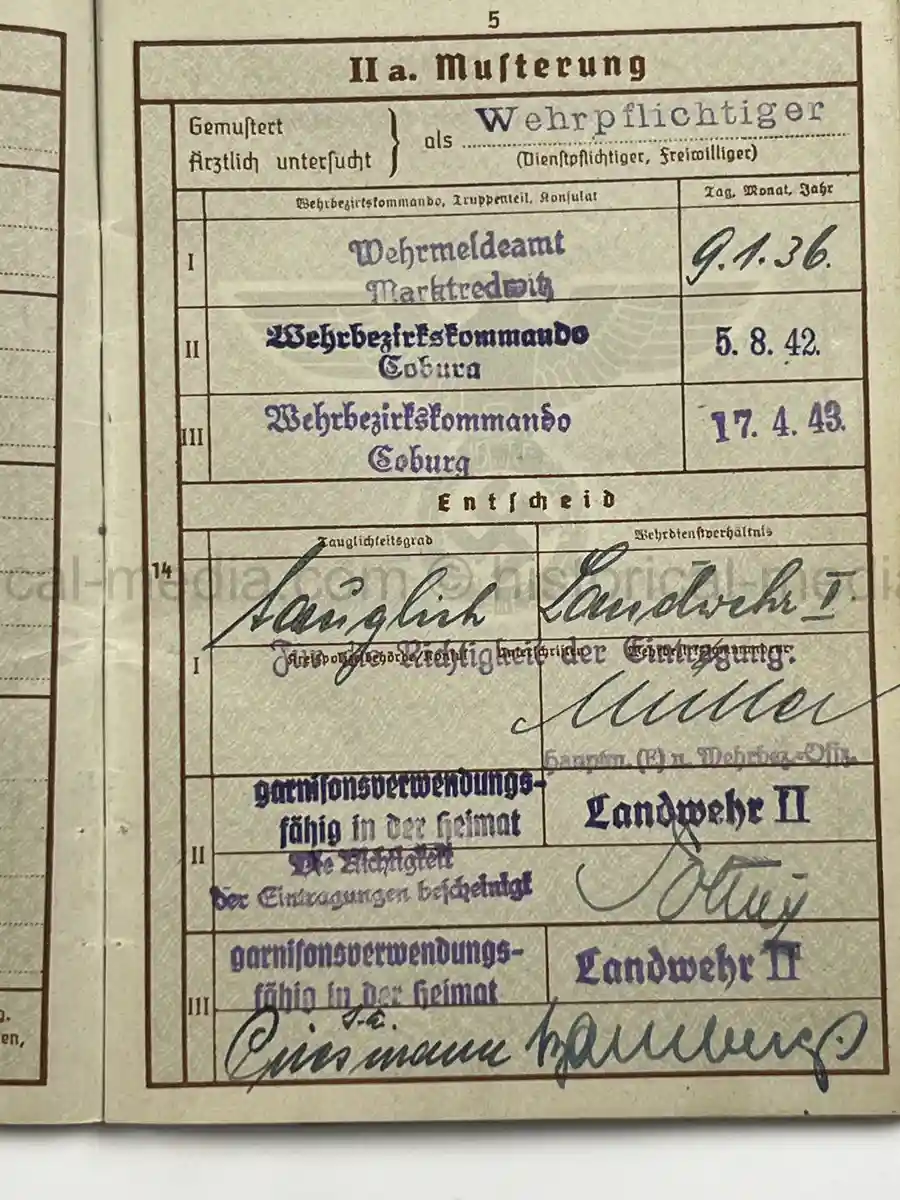 5
II a. Musterung
Gemustert
Ärztlich untersucht } als Wehrpflichtiger
(Dienstpflichtiger, Freiwilliger)
Wehrbezirkskommando, Truppenteil, Konsulat Tag, Monat, Jahr
I Wehrmeldeamt Marktredwitz 9.1.36.
II Wehrbezirkskommando Coburg 5. 8. 42.
III Wehrbezirkskommando Coburg 17. 4. 43.
Entscheid
14
Tauglichkeitsgrad Wehrdienstverhältnis
cal-media.com © historical-media
tauglich Landwehr I.
I
Kreispolizeibehörde/Konsul Unterschriften
Für die Richtigkeit der Eintragung.
Müller
Hauptm. (E) u. Wehrbez.-Offz.
II
garnisonsverwendungs-
fähig in der Heimat Landwehr II
Die Richtigkeit
der Eintragungen bescheinigt
III
garnisonsverwendungs-
fähig in der Heimat Landwehr II
g.
en,